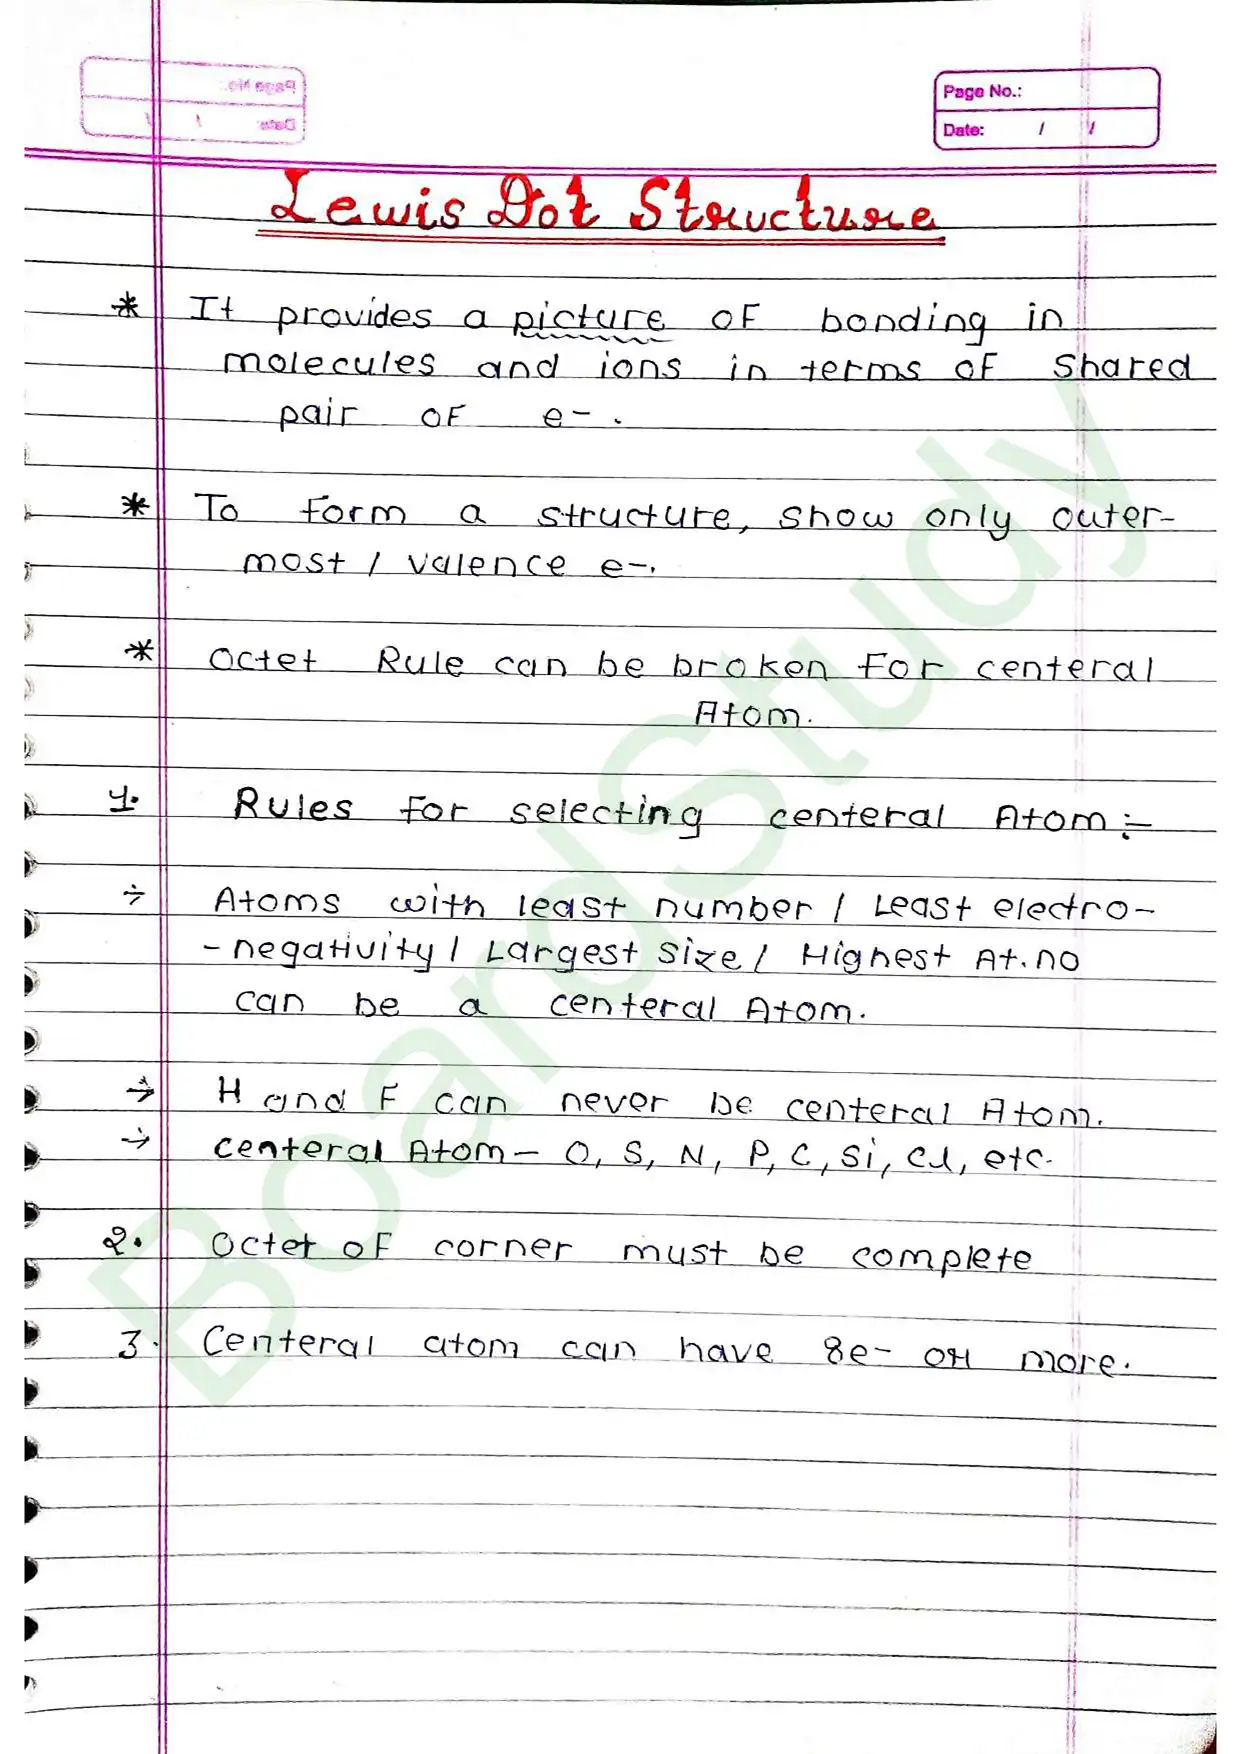 Page No.:
Date:
Page No.:
Date: / /
Lewis Dot Structure
* It provides a picture of bonding in
molecules and ions in terms of shared
pair of e-.
* To form a structure, show only outer-
most / valence e-.
* Octet Rule can be broken for centeral
Atom.
1. Rules for selecting centeral Atom :-
÷ Atoms with least number / Least electro-
-negativity / Largest size / Highest At.no
can be a centeral Atom.
→ H and F can never be centeral Atom.
→ centeral Atom - O, S, N, P, C, Si, Cl, etc.
2. Octet of corner must be complete
3. Centeral atom can have 8e- or more.
BoardStudy